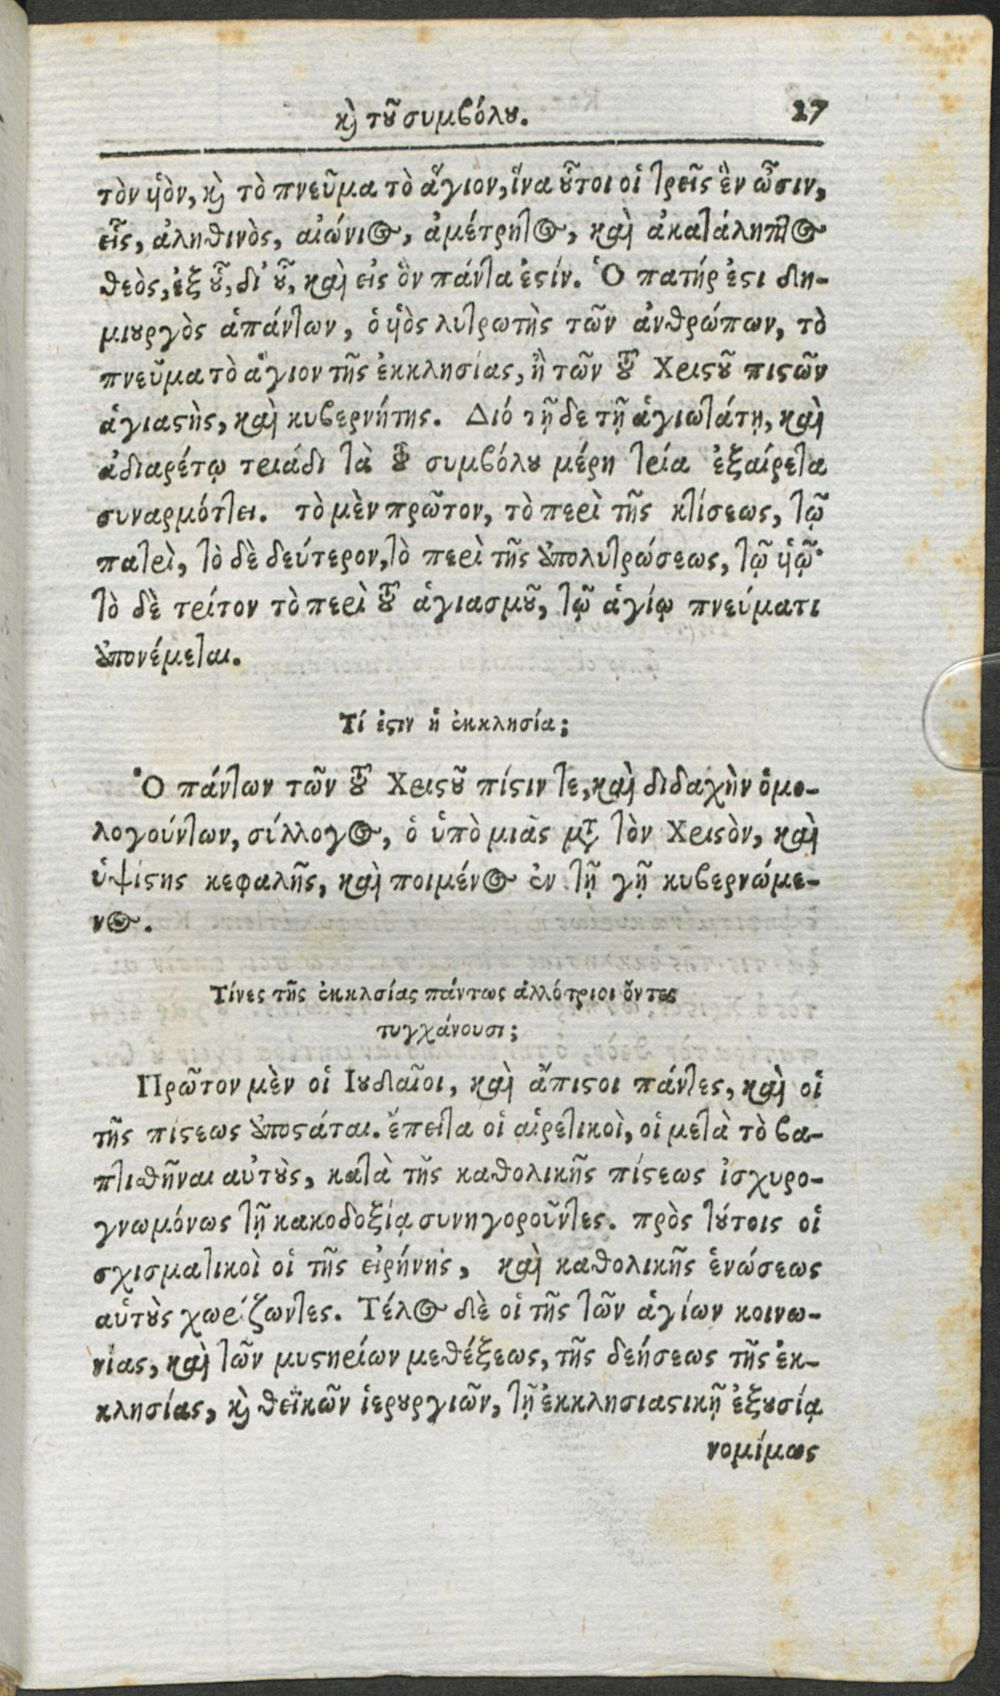 καὶ τοῦ συμβόλου. 27
τὸν υἱὸν, καὶ τὸ πνεῦμα τὸ ἅγιον, ἵνα οὗτοι οἱ τρεῖς ἓν ὦσιν,
εἷς, ἀληθινὸς, αἰώνιος, ἀμέτρητος, καὶ ἀκατάληπτος
θεὸς, ἐξ οὗ, δι' οὗ, καὶ εἰς ὃν πάντα ἐστίν. Ὁ πατήρ ἐστι δη-
μιουργὸς ἁπάντων, ὁ υἱὸς λυτρωτὴς τῶν ἀνθρώπων, τὸ
πνεῦμα τὸ ἅγιον τῆς ἐκκλησίας, ἢ τῶν τοῦ Χριστοῦ πιστῶν
ἁγιαστὴς, καὶ κυβερνήτης. Διό τῇ δε τῇ ἁγιωτάτῃ, καὶ
ἀδιαρέτῳ τριάδι τὰ τοῦ συμβόλου μέρη τρία ἐξαίρετα
συναρμόττει. τὸ μὲν πρῶτον, τὸ περὶ τῆς κτίσεως, τῷ
πατρὶ, τὸ δὲ δεύτερον, τὸ περὶ τῆς ἀπολυτρώσεως, τῷ υἱῷ·
τὸ δὲ τρίτον τὸ περὶ τοῦ ἁγιασμοῦ, τῷ ἁγίῳ πνεύματι
ἀπονέμεται.
Τί ἐστιν ἡ ἐκκλησία;
Ὁ πάντων τῶν τοῦ Χριστοῦ πίστιν τε, καὶ διδαχὴν ὁμο-
λογούντων, σύλλογος, ὁ ὑπὸ μιᾶς μετὰ τὸν Χριστὸν, καὶ
ὑψίστης κεφαλῆς, καὶ ποιμένος ἐν τῇ γῇ κυβερνώμε-
νος.
Τίνες τῆς ἐκκλσίας πάντως ἀλλότριοι ὄντες
τυγχάνουσι;
Πρῶτον μὲν οἱ Ιουδαῖοι, καὶ ἄπιστοι πάντες, καὶ οἱ
τῆς πίστεως ἀποστάται. ἔπειτα οἱ αἱρετικοὶ, οἱ μετὰ τὸ βα-
πτισθῆναι αὐτοὺς, κατὰ τῆς καθολικῆς πίστεως ἰσχυρο-
γνωμόνως τῇ κακοδοξίᾳ συνηγοροῦντες. πρὸς τούτοις οἱ
σχισματικοὶ οἱ τῆς εἰρήνης, καὶ καθολικῆς ἑνώσεως
αὑτοὺς χωρίζοντες. Τέλος δὲ οἱ τῆς τῶν ἁγίων κοινω-
νίας, καὶ τῶν μυστηρίων μεθέξεως, τῆς δεήσεως τῆς ἐκ-
κλησίας, καὶ θεϊκῶν ἱερουργιῶν, τῇ ἐκκλησιαστικῇ ἐξουσίᾳ
νομίμως